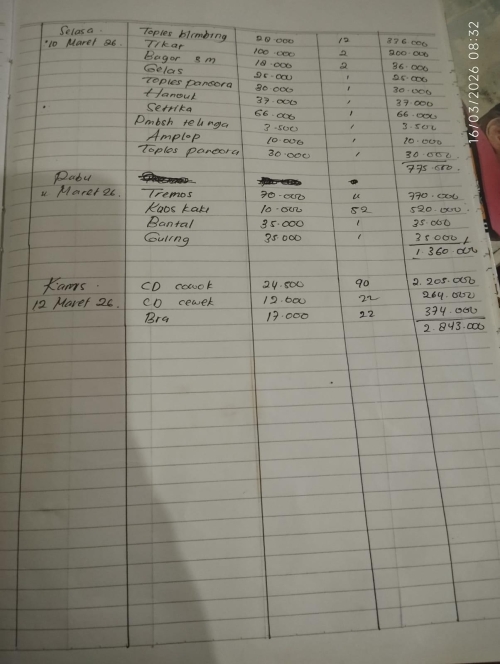 Selasa Toples blimbing 28.000 12 336.000
10 Maret 26. Tikar 100.000 2 200.000
Bagor 3 m 18.000 2 36.000
Gelas 25.000 1 25.000
Toples pandora 30.000 1 30.000
Handuk 37.000 1 37.000
Setrika 66.000 1 66.000
Pmbsh telinga 3.500 1 3.500
Amplop 10.000 1 10.000
Toples pandora 30.000 1 30.000
Rabu
11 Maret 26. Tremos 70.000 11 770.000
Kaos kaki 10.000 52 520.000
Bantal 35.000 1 35.000
Guling 35.000 1 35.000
1.360.000
Kamis. CD cowok 24.500 90 2.205.000
12 Maret 26. CD cewek 12.000 22 264.000
Bra 17.000 22 374.000
2.843.000
16/03/2026 08:32